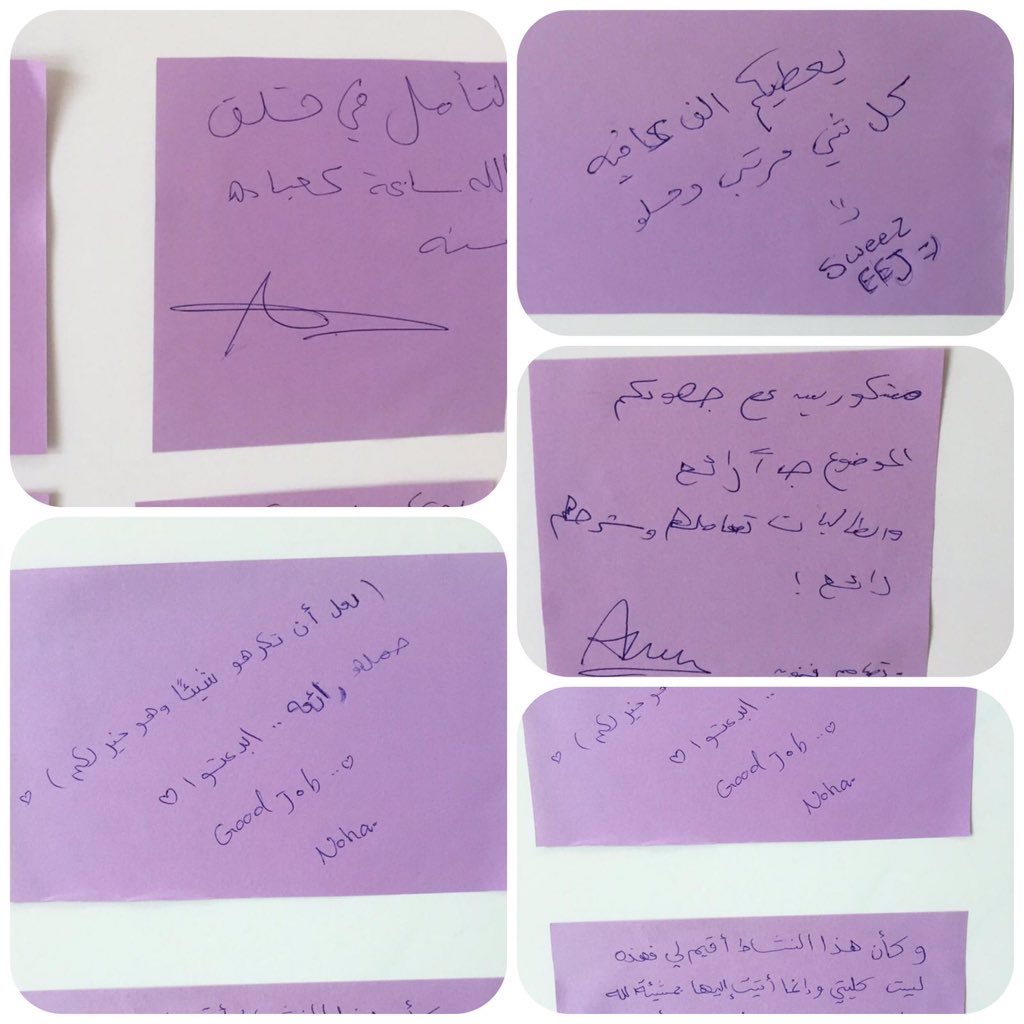 لتأمل في خلق
الله ساعة كعبادة
سنه
يعطيكم الف عافيه
كل شي مرتب وحلو
Sweez
EEJ =)
مشكورين ع جهودكم
الموضوع جداً رائع
والطالبات تعاملهم وشرحهم
رائع !
(لعل أن تكرهو شيئًا وهو خير لكم) ♡
حمله رائعه .. ابدعتوا ♡
Good Job ..♡
Noha.
و خير لكم) ♡
ابدعتوا ♡
Good Job ..♡
Noha.
وكأن هذا النشاط أقيم لي فهذه
ليست كليتي وإنما أتيت إليها بمشيئة الله